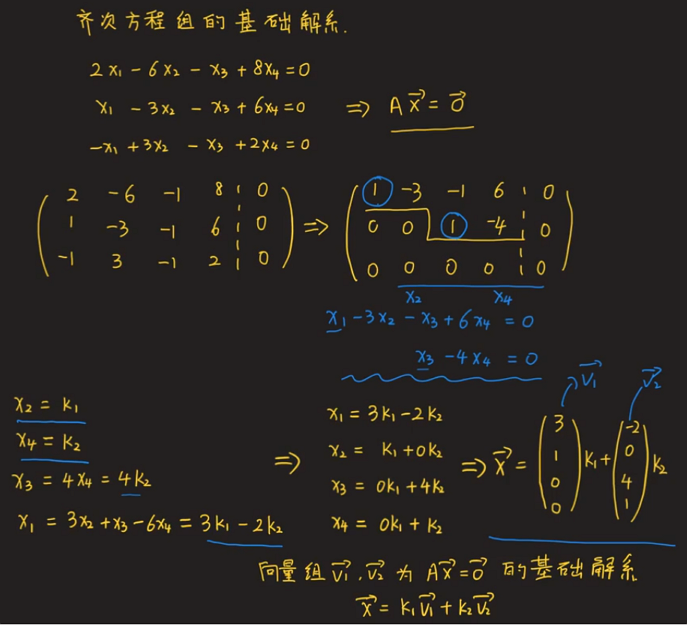 齐次方程组的基础解系.
2x₁ - 6x₂ - x₃ + 8x₄ = 0
x₁ - 3x₂ - x₃ + 6x₄ = 0 ⇒ Ax⃗ = 0⃗
-x₁ + 3x₂ - x₃ + 2x₄ = 0
2 -6 -1 8 ¦ 0 ⇒ 1 -3 -1 6 ¦ 0
1 -3 -1 6 ¦ 0 0 0 1 -4 ¦ 0
-1 3 -1 2 ¦ 0 0 0 0 0 ¦ 0
x₂ x₄
x₁ - 3x₂ - x₃ + 6x₄ = 0
x₃ - 4x₄ = 0
x₂ = k₁
x₄ = k₂
x₃ = 4x₄ = 4k₂
x₁ = 3x₂ + x₃ - 6x₄ = 3k₁ - 2k₂
⇒
x₁ = 3k₁ - 2k₂
x₂ = k₁ + 0k₂
x₃ = 0k₁ + 4k₂
x₄ = 0k₁ + k₂
v₁⃗ v₂⃗
⇒ x⃗ = (3 1 0 0) k₁ + (-2 0 4 1) k₂
向量组 v₁⃗, v₂⃗ 为 Ax⃗ = 0⃗ 的基础解系
x⃗ = k₁v₁⃗ + k₂v₂⃗